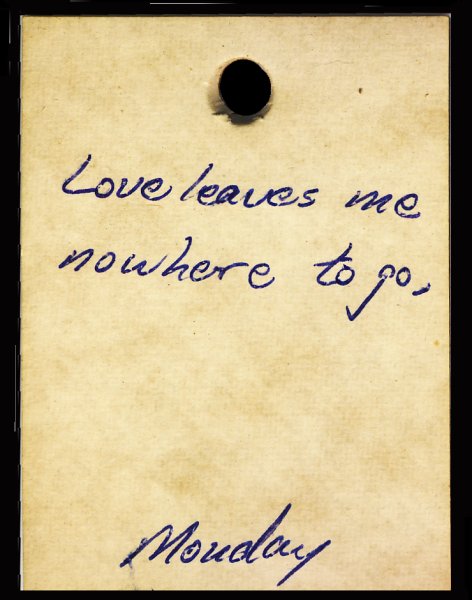 Love leaves me
nowhere to go,
Monday